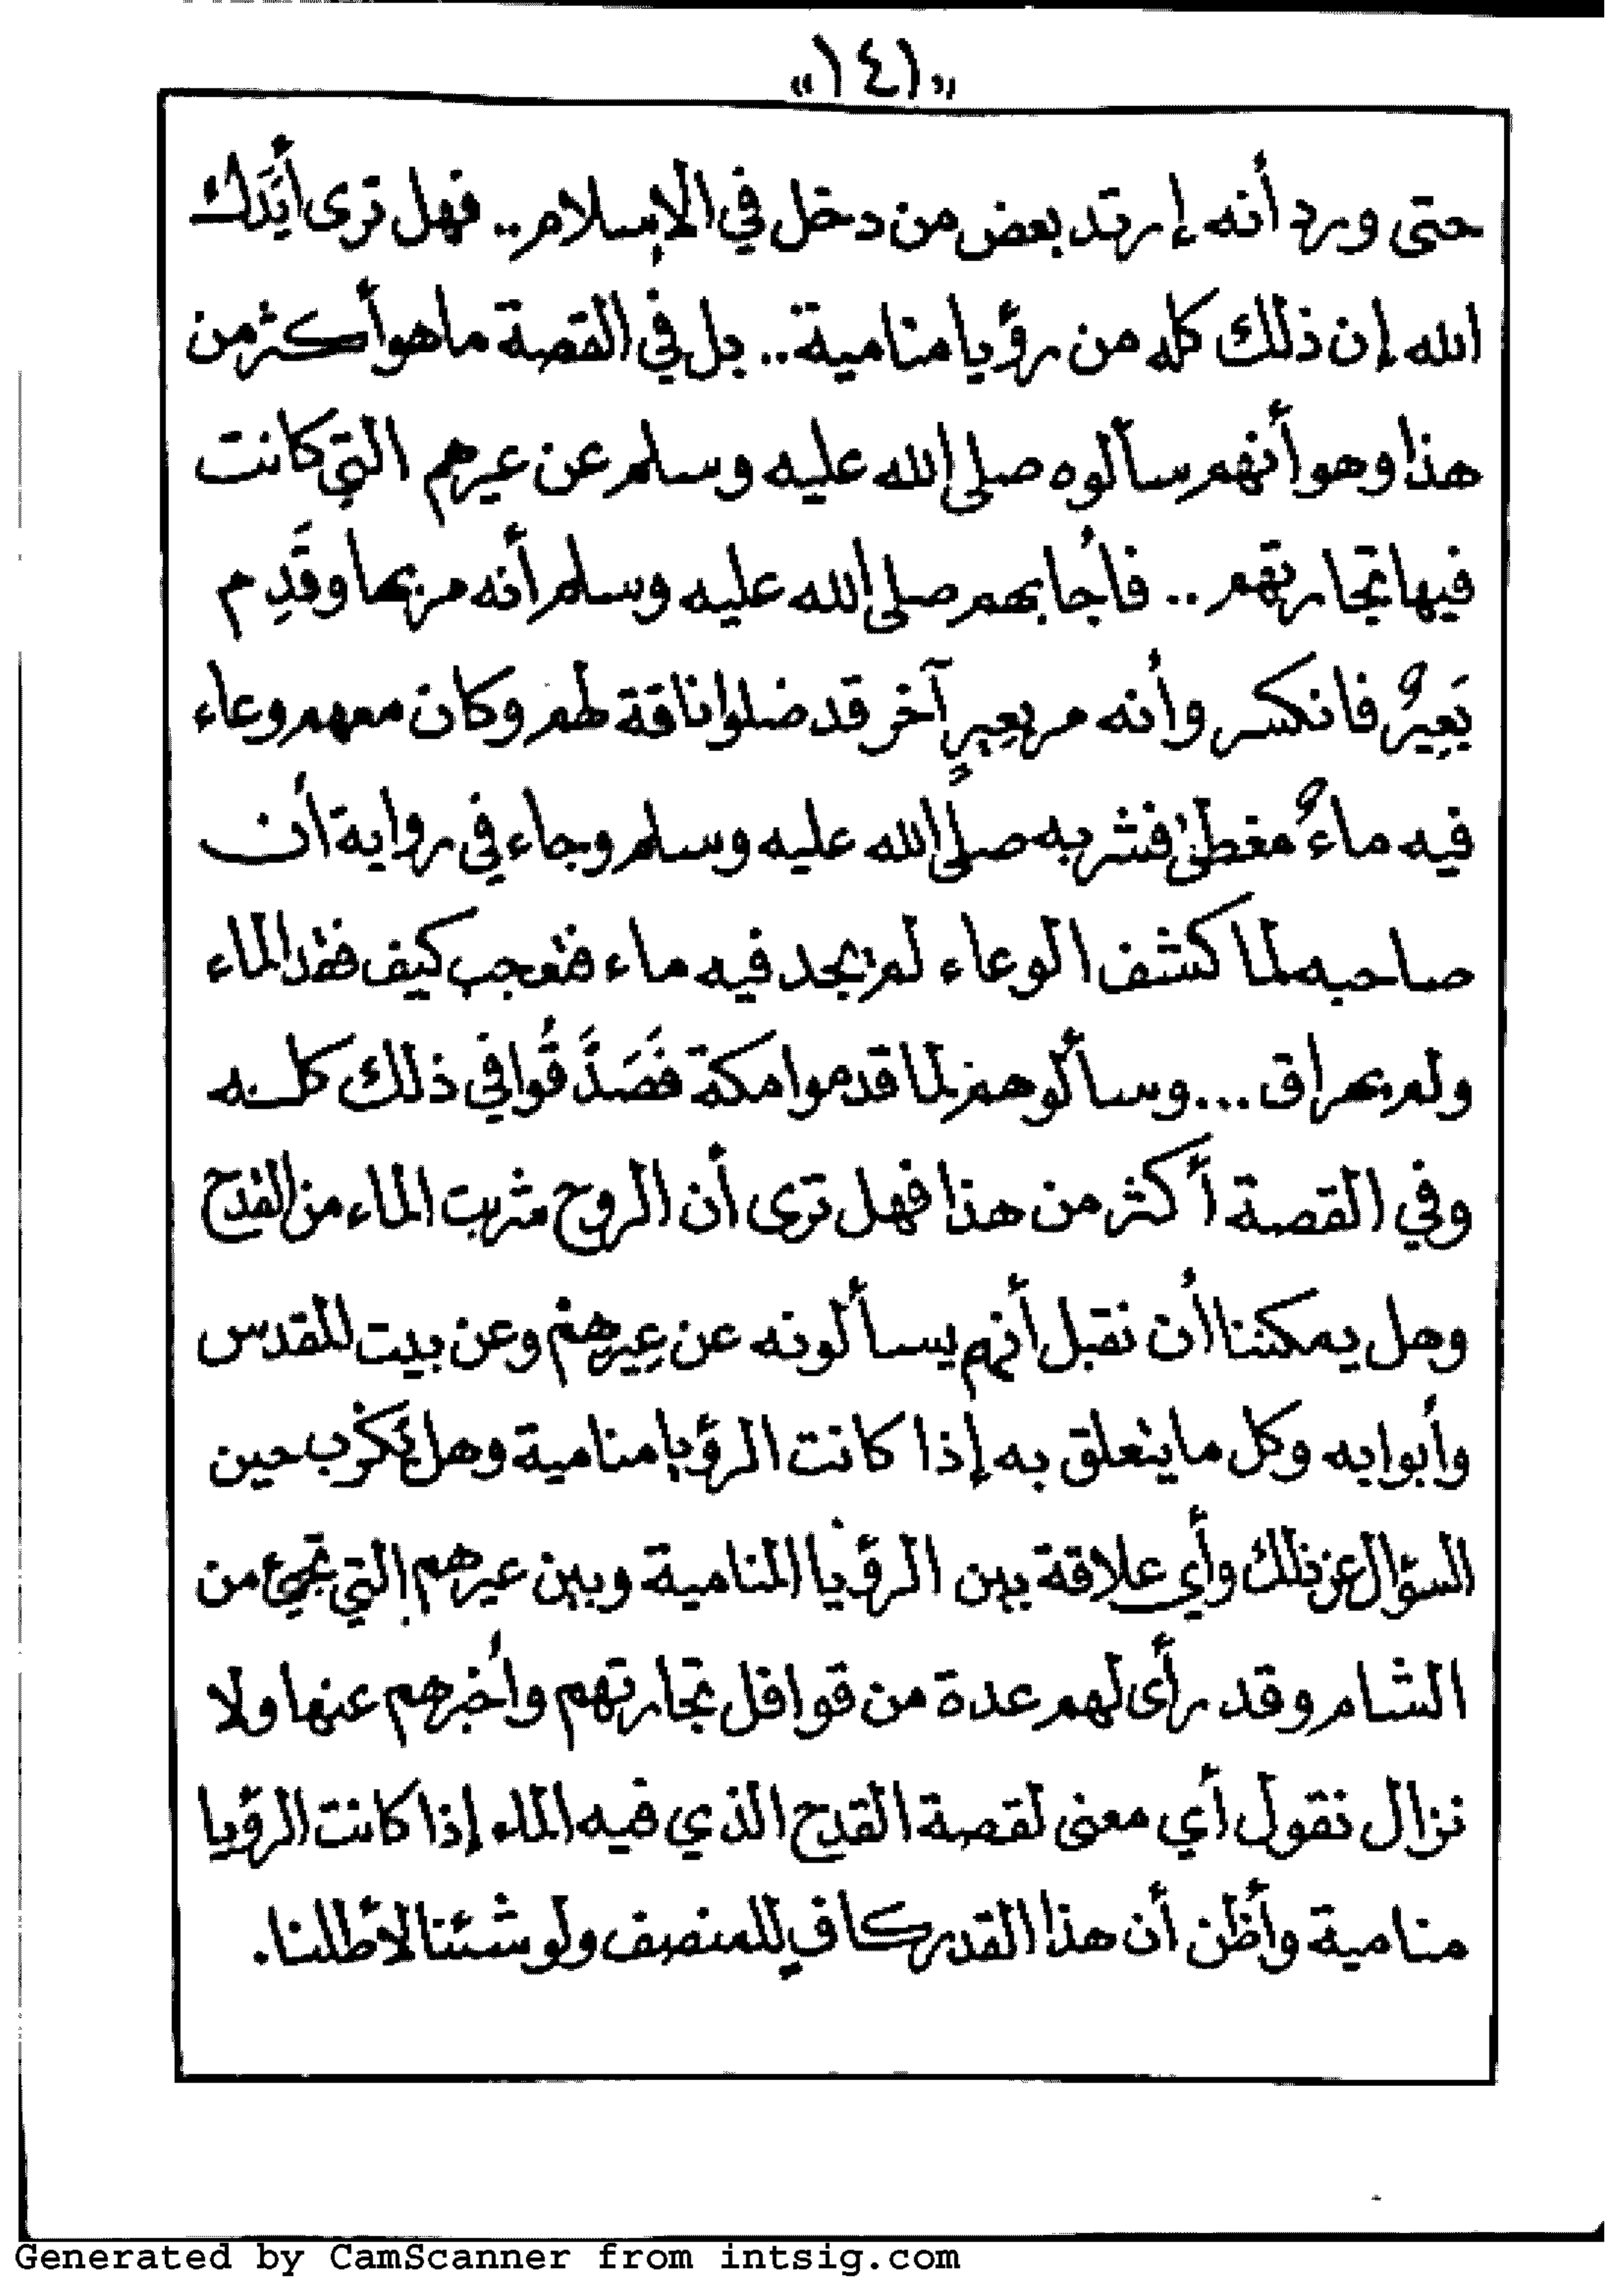 «١٤١»
حتى ورد أنه إرتد بعض من دخل في الإسلام.. فهل ترى أيَّدك
الله إن ذلك كله من رؤيا منامية.. بل في القصة ما هو أكثر من
هذا وهو أنهم سألوه صلى الله عليه وسلم عن عيرهم التي كانت
فيها تجارتهم.. فأجابهم صلى الله عليه وسلم أنه مر بها وقَدِم
بَعِيرٌ فانكسر وأنه مر بعِيرٍ آخر قد ضلوا ناقة لهم وكان معهم وعاء
فيه ماءٌ مغطىً فشربه صلى الله عليه وسلم وجاء في رواية أن
صاحبه لما كشف الوعاء لم يجد فيه ماء فتعجب كيف فقد الماء
ولم يهراق... وسألوهم لما قدموا مكة فَصَدَّقُوا في ذلك كله
وفي القصة أكثر من هذا فهل ترى أن الروح شربت الماء من القدح
وهل يمكننا أن نقبل أنهم يسألونه عن عِيرهم وعن بيت المقدس
وأبوابه وكل ما يتعلق به إذا كانت الرؤيا منامية وهل يَكْرب حين
السؤال عن ذلك وأي علاقة بين الرؤيا المنامية وبين عيرهم التي تجيئ من
الشام وقد رأى لهم عدة من قوافل تجارتهم وأخبرهم عنها ولا
نزال نقول أي معنى لقصة القدح الذي فيه الماء إذا كانت الرؤيا
منامية وأظن أن هذا القدر كافي للمنصف ولو شئنا لأطلنا.
Generated by CamScanner from intsig.com